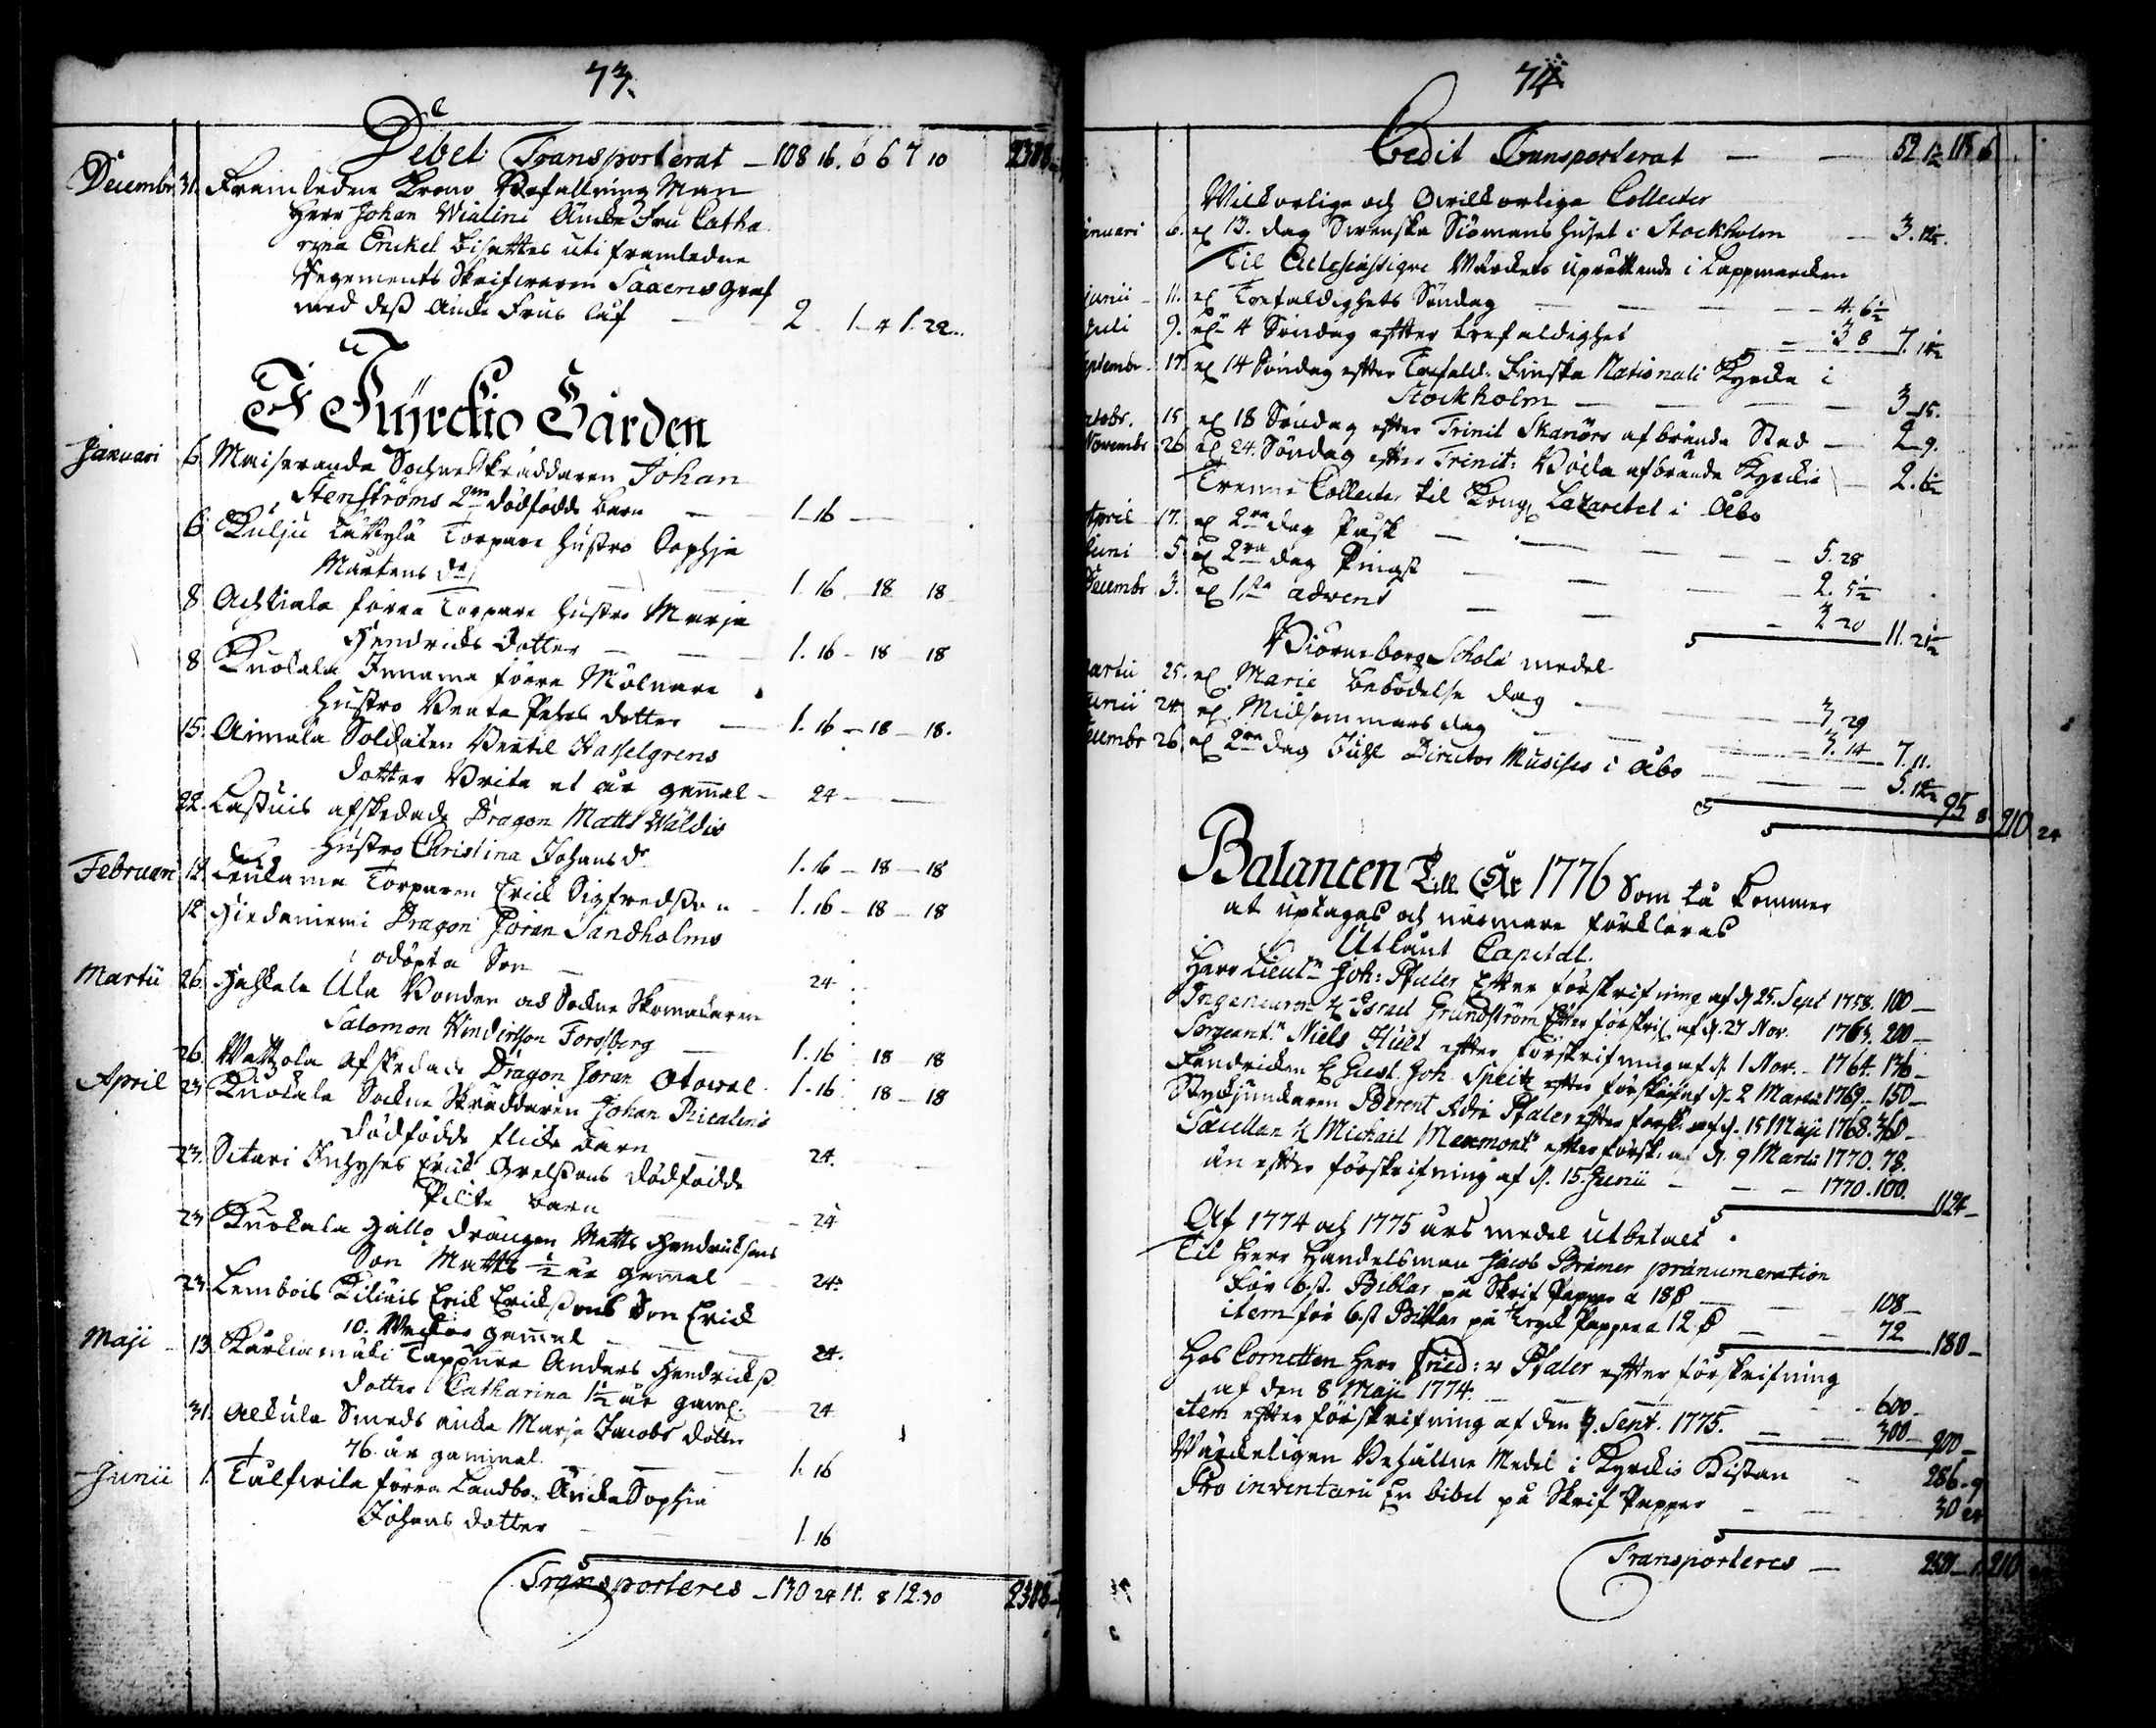 73.
Debet Transporterat — 108 16. 6 6 7 10 2308
Decembr. 31. Framledne Krono Befallning Man
Herr Johan Wialini Äncke Fru Catha
rina Enckel bisattes uti framledne
Regements Skrifwaren Saxens Graf
med dess Äncke Frus lass 2 1 4 1. 22.
I Kyrckio Gården
Januari 6. Maiserande Sochne Skräddaren Johan
Stenströms 2ne dödfödde barn — 1 16 —
6. Kulju Torpare hustro Sophja
Mårtens dr 1. 16 — 18 18
8 Achtiala förra Torpare hustro Marja
Hendrichs dotter — 1. 16 — 18 — 18
8. Kuokala Innama förra Mölnare
hustro Beata Pehrs dotter — 1. 16 — 18 — 18.
15. Aimala Soldaten Bertil Hasselgrens
dotter Brita et år gamal — 24 — —
22. afskedade Dragon Matts Wäldis
hustro Christina Johans dr 1. 16 — 18 — 18
Februari 12. Torparen Erick Sigfredsson — 1. 16 — 18 — 18
12. Hiedaniemi Dragon Jöran Sandholms
odöpta Son — 24
Martii 26. Ula Bonden och Sockne Skomakaren
Salomon Forssberg — 1. 16 18 18
26. Wattzola Afskedade Dragon Jöran Otowal 1. 16 18 — 18
April 23. Kuokala Sockne Skräddaren Johan Ricalins
dödfödde flicke barn — 24.
23. Sitari Inhyses Erick Grelssons dödfödde
Pilte barn — 24
23 Kuokala Gallo Drängen Matts Hendricksons
Son Matts ½ år gamal — 24.
23. Lembois Kiliais Erick Erickssons Son Erick
10. Weckor gamal — 24.
Maji 13. Kärkiamäki Tappura Anders Hendrickss.
dotter Catharina 1½ år gaml. 24
31. Alkula Smeds äncka Marja Jacobs dotter
76 år gammal. 1. 16
Junii 1. Tulfwila förra Landbo Äncka Sophia
Johans dotter — 1. 16
Transporteres — 130 24 11. 8 12. 30 2308
74
Credit Transporterat — — 52. 1½ 115 6
Wilkorlige och Owilkorlige Collecter
Januari 6. af 13. dag Swenska Siömans huset i Stockholm — 3. 12½.
Til Ecclesiastique Wärckets uprättande i Lappmarcken
Junii 11. af Trefaldighets Söndag — — 4. 6½
Juli 9. af 4 Söndag effter trefaldighet — 3 8 7. 14½
Septembr. 17. af 14 Söndag effter Trefald. Finska Nationali Kyrcka i
Stockholm — — 3 15.
Octobr. 15. af 18 Söndag effter Trinit Skanörs afbrända Stad — 2 9.
Novembr 26 af 24. Söndag effter Trinit: afbrända Kyrckio — 2. 6½
Trenne Collecter til Kongl Lazarettet i Åbo
April 17. af 2ra dag Påsk — — 5. 28
Juni 5 af 2ra dag Pingst — — 2. 5½
Decembr 3. af 1sta advent — 3 20 11. 21½
Biörneborg Schola medel
Martii 25. af Marie bebodelse dag — — 3 29
Junii 24. af Midsommars dag — 3. 14 7. 11.
Decembr 26. af 2ra dag Juhl Director Musices i Åbo — 5. 12½
95 8 210 24
Balancen Till År 1776 Som tå kommer
at uptagas och närmare förklaras
Utlånt Capital.
Herr Lieutn Joh: Pfaler Efter förskrifning af d. 25. Sept 1758. 100 —
Ingeneuren H. Israel Grundström Efter förskrif. af d. 27 Nov. 1763. 200 —
Sergeantn Niels Hult effter förskrifning af d. 1 Nov. 1764. 136 —
Fendricken H Gust. Joh. Spritz effter förskrif af d. 2 Martii 1769. — 150 —
Styckjunckaren Berent Adri Pfaler effter försk. af d. 15 Maji 1768. 360 —
Sacellan H Michail Maxmonts effter försk. af d. 9 Martii 1770. 78.
än effter förskrifning af d. 15. Junii — — 1770. 100. 1124 —
Af 1774 och 1775 års medel utbetalt
Til Herr Handelsman Jacob Brämer pränumeration
för 6 st. Biblar på Skrif Papper a 18 — 108 —
item för 6 st Biblar på tryck Papper a 12 — 72 180 —
Hos Cornetten Herr Fried: v Pfaler effter förskrifning
af den 8 Maji 1774. — 600 —
item effter förskrifning af den 9. Sept. 1775. — 300 — 900 —
Wärckeligen Behållne Medel i Kyrckio Kistan — 286. 9
Pro inventarii En bibel på Skrif Papper — 30 24
Transporteres — 2521 — 1. 210